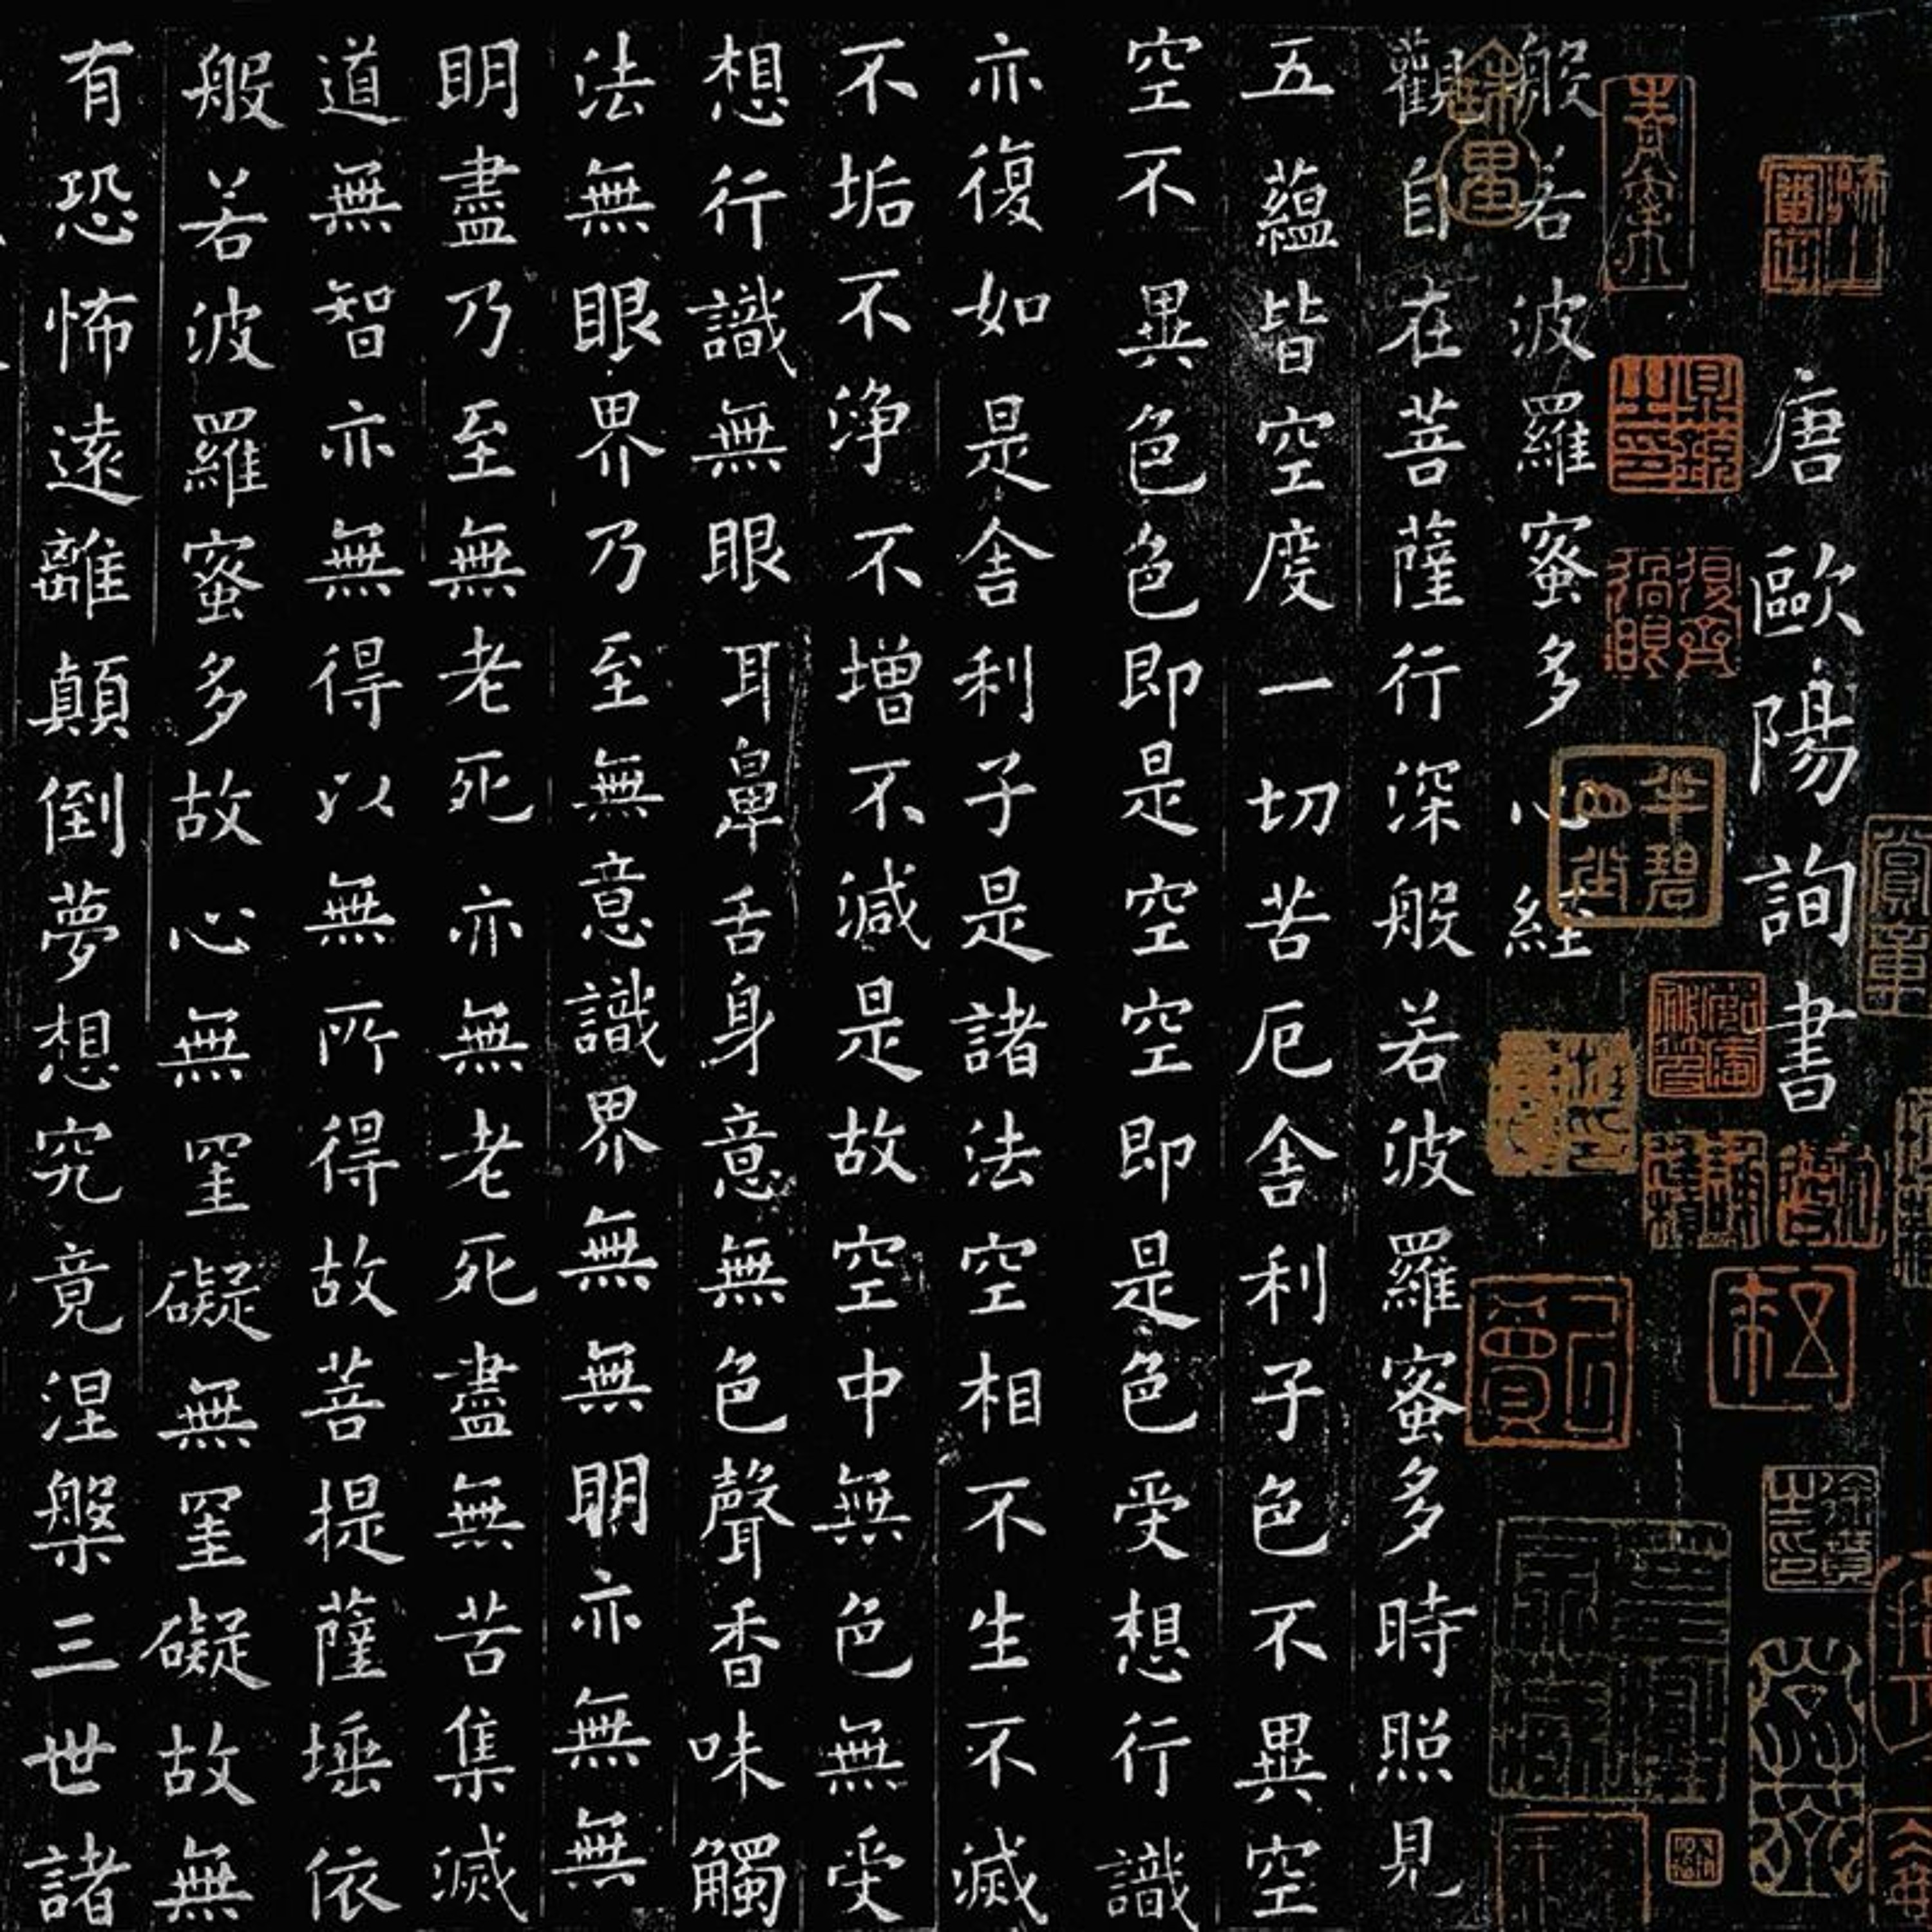 唐歐陽詢書
般若波羅蜜多心経
觀自在菩薩行深般若波羅蜜多時照見
五蘊皆空度一切苦厄舎利子色不異空
空不異色色即是空空即是色受想行識
亦復如是舎利子是諸法空相不生不滅
不垢不浄不増不減是故空中無色無受
想行識無眼耳鼻舌身意無色聲香味觸
法無眼界乃至無意識界無無明亦無無
明盡乃至無老死亦無老死盡無苦集滅
道無智亦無得以無所得故菩提薩埵依
般若波羅蜜多故心無罣礙無罣礙故無
有恐怖遠離顛倒夢想究竟涅槃三世諸